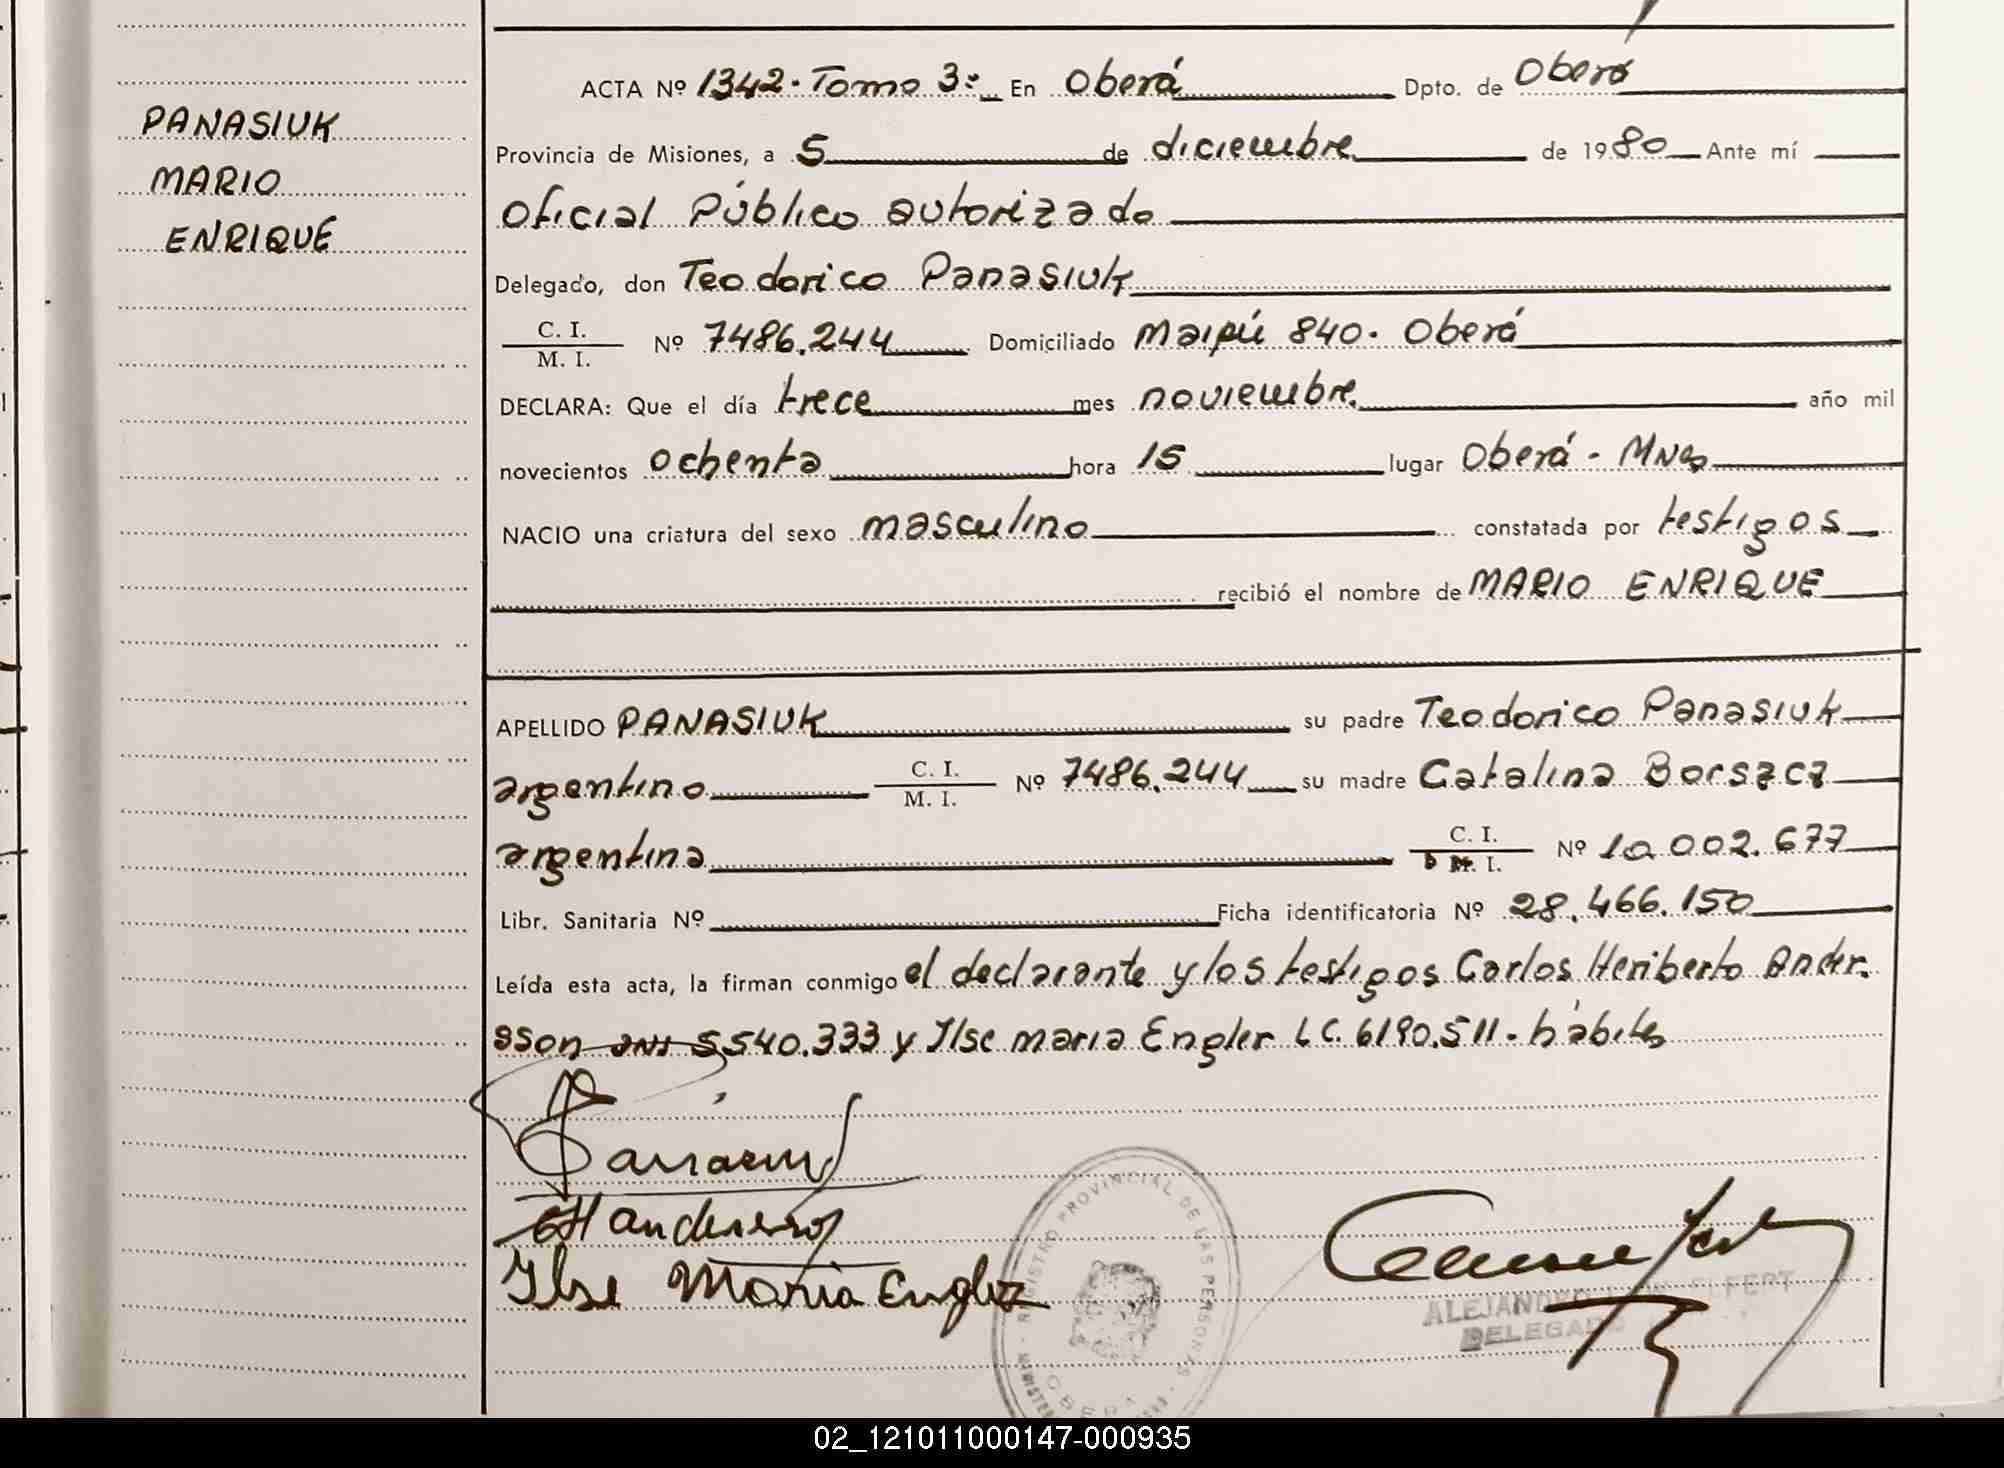 ACTA Nº 1342. Tomo 3: En Oberá Dpto. de Oberá
PANASIUK
Provincia de Misiones, a 5 de diciembre de 1980 Ante mí
MARIO
Oficial Público autorizado
ENRIQUE
Delegado, don Teodorico Panasiuk
C. I.
M. I. Nº 7486.244 Domiciliado Maipú 840. Oberá
DECLARA: Que el día trece mes noviembre año mil
novecientos ochenta hora 15 lugar Oberá - Mnes
NACIO una criatura del sexo masculino constatada por testigos
recibió el nombre de MARIO ENRIQUE
APELLIDO PANASIUK su padre Teodorico Panasiuk
argentino C. I.
M. I. Nº 7486.244 su madre Catalina Borszcz
argentina C. I.
D M. I. Nº 10.002.677
Libr. Sanitaria Nº Ficha identificatoria Nº 28.466.150
Leída esta acta, la firman conmigo el declarante y los testigos Carlos Heriberto Ander
sson DNI 5540.333 y Ilse maria Engler LC. 6190.511. hábiles
Ilse Maria Engler
REGISTRO PROVINCIAL DE LAS PERSONAS
OBERA
DELEGADO
02_121011000147-000935